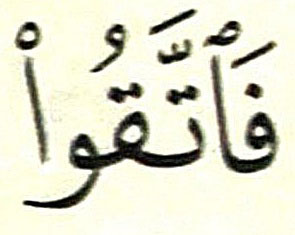 فَٱتَّقُوا۟